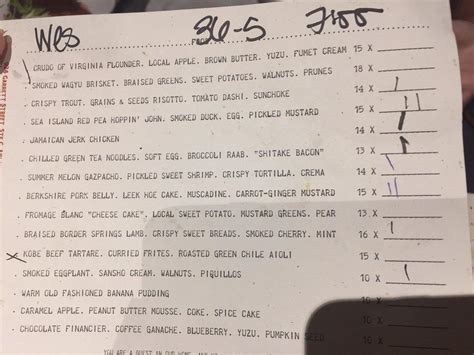 Wes 36-5
CRUDO OF VIRGINIA FLOUNDER. LOCAL APPLE. BROWN BUTTER. YUZU. FUMET CREAM 15 X
. SMOKED WAGYU BRISKET. BRAISED GREENS. SWEET POTATOES. WALNUTS. PRUNES 18 X
. CRISPY TROUT. GRAINS & SEEDS RISOTTO. TOMATO DASHI. SUNCHOKE 14 X I
. SEA ISLAND RED PEA HOPPIN' JOHN. SMOKED DUCK. EGG. PICKLED MUSTARD 15 X II
. JAMAICAN JERK CHICKEN 14 X I
. CHILLED GREEN TEA NOODLES. SOFT EGG. BROCCOLI RAAB. "SHITAKE BACON" 13 X I
. SUMMER MELON GAZPACHO. PICKLED SWEET SHRIMP. CRISPY TORTILLA. CREMA 14 X I
. BERKSHIRE PORK BELLY. LEEK HOE CAKE. MUSCADINE. CARROT-GINGER MUSTARD 15 X II
. FROMAGE BLANC "CHEESE CAKE". LOCAL SWEET POTATO. MUSTARD GREENS. PEAR 13 X
. BRAISED BORDER SPRINGS LAMB. CRISPY SWEET BREADS. SMOKED CHERRY. MINT 16 X
X KOBE BEEF TARTARE. CURRIED FRITES. ROASTED GREEN CHILE AIOLI 15 X
. SMOKED EGGPLANT. SANSHO CREAM. WALNUTS. PIQUILLOS 10 X I
. WARM OLD FASHIONED BANANA PUDDING 10 X
. CARAMEL APPLE. PEANUT BUTTER MOUSSE. COKE. SPICE CAKE 10 X
. CHOCOLATE FINANCIER. COFFEE GANACHE. BLUEBERRY. YUZU. PUMPKIN SEED
YOU ARE A GUEST IN OUR HOME